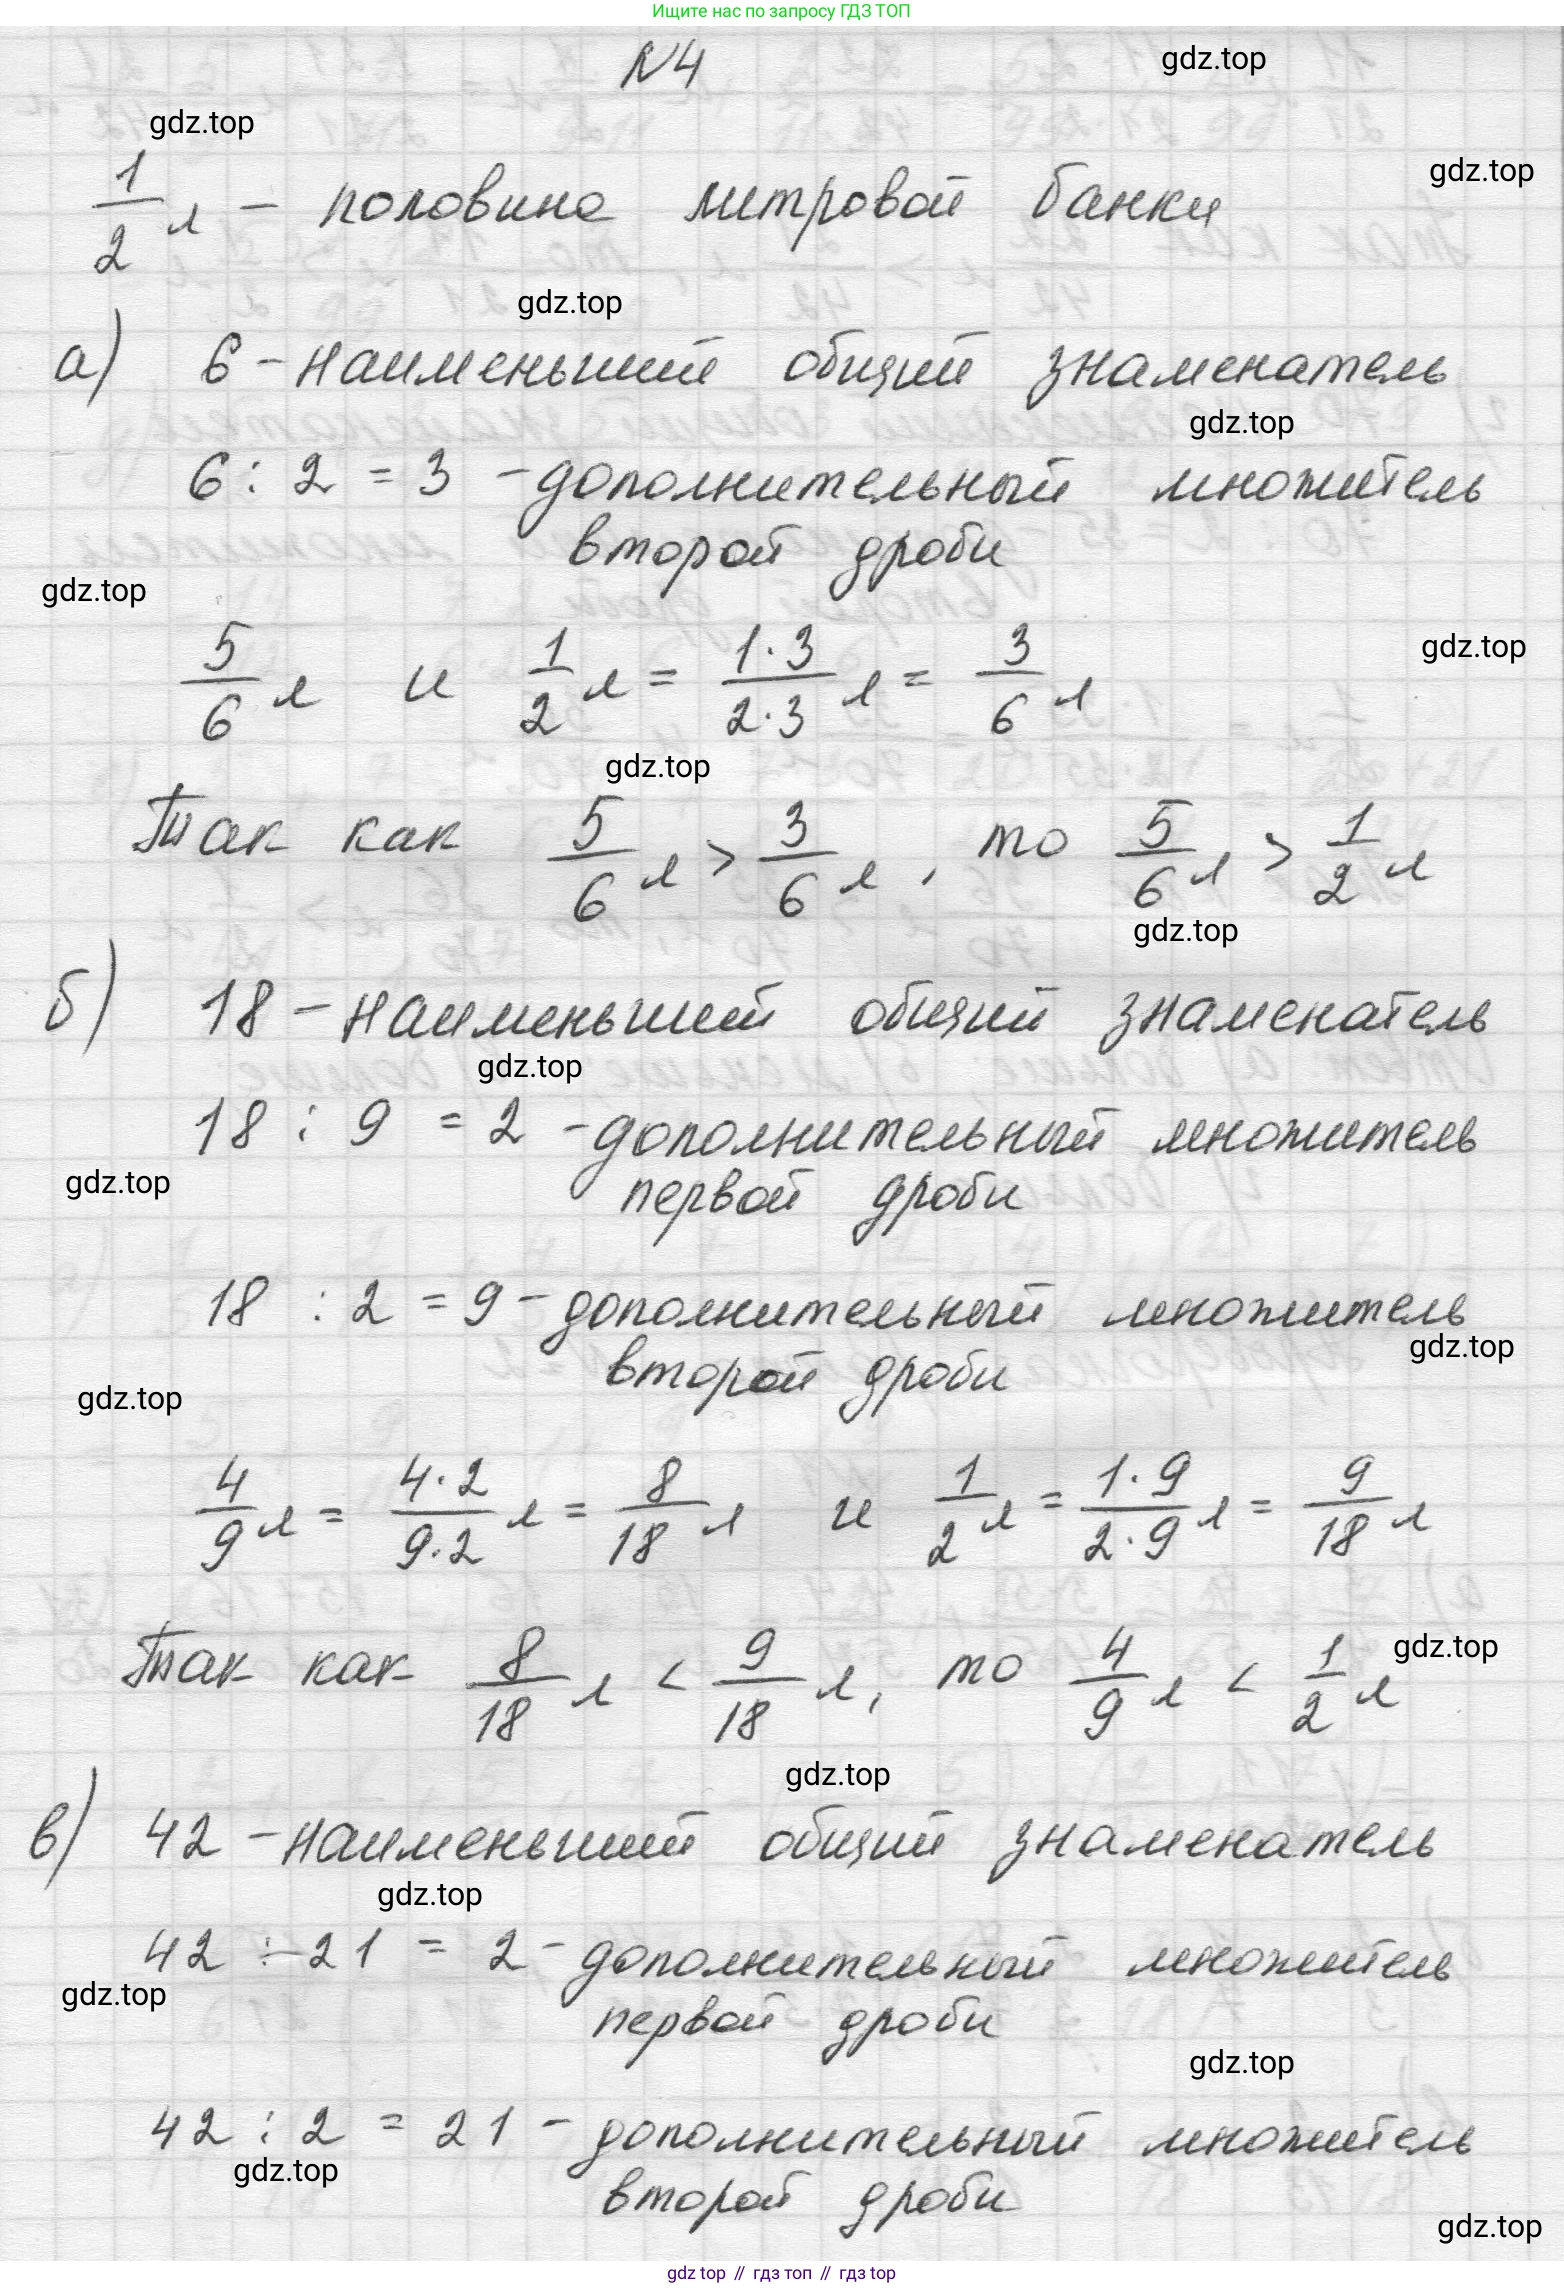 Ищите нас по запросу ГДЗ ТОП
N4
gdz.top
gdz.top
1/2 л – половина литровой банки
gdz.top
gdz.top
а) 6 – наименьший общий знаменатель
gdz.top
6 : 2 = 3 – дополнительный множитель
второй дроби
gdz.top
5/6 л и 1/2 л = 1·3/2·3 л = 3/6 л
gdz.top
gdz.top
Так как 5/6 л > 3/6 л, то 5/6 л > 1/2 л
gdz.top
б) 18 – наименьший общий знаменатель
gdz.top
18 : 9 = 2 – дополнительный множитель
gdz.top
первой дроби
18 : 2 = 9 – дополнительный множитель
gdz.top
второй дроби
gdz.top
4/9 л = 4·2/9·2 л = 8/18 л и 1/2 л = 1·9/2·9 л = 9/18 л
Так как 8/18 л < 9/18 л, то 4/9 л < 1/2 л
gdz.top
gdz.top
в) 42 – наименьший общий знаменатель
gdz.top
42 : 21 = 2 – дополнительный множитель
gdz.top
первой дроби
gdz.top
42 : 2 = 21 – дополнительный множитель
gdz.top
второй дроби
gdz.top
gdz top // гдз топ // gdz top